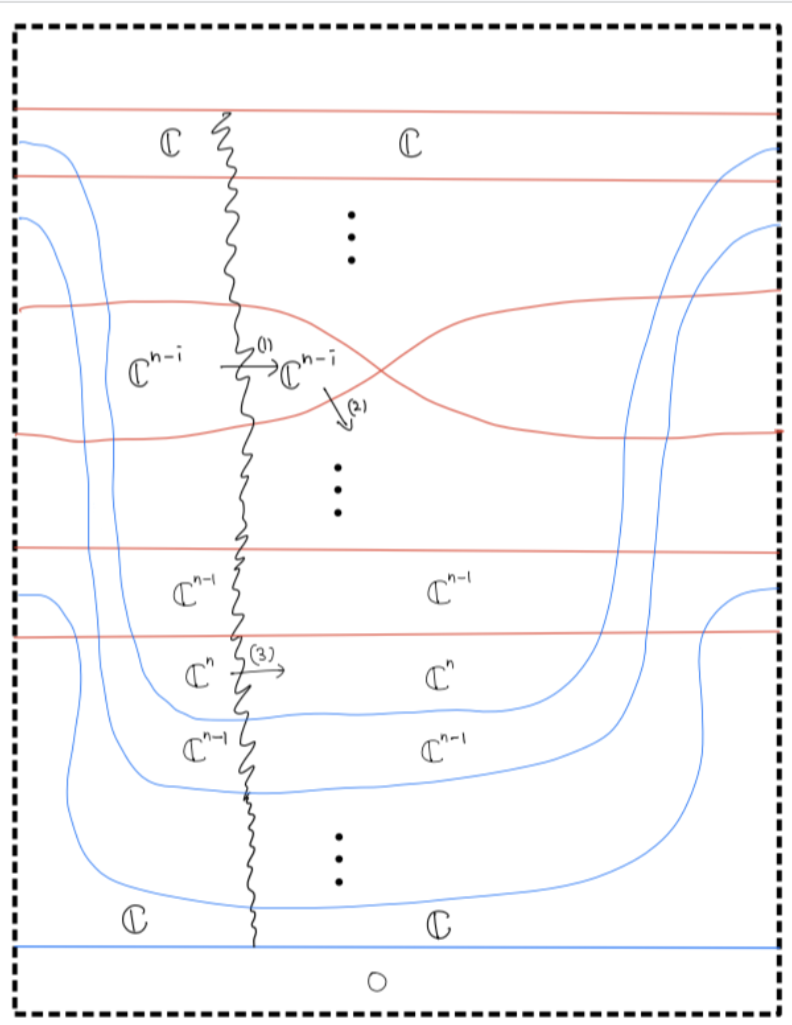 ℂ ℂ
ℂⁿ⁻ⁱ (1) ℂⁿ⁻ⁱ
(2)
ℂⁿ⁻¹ ℂⁿ⁻¹
ℂⁿ (3) ℂⁿ
ℂⁿ⁻¹ ℂⁿ⁻¹
ℂ ℂ
0